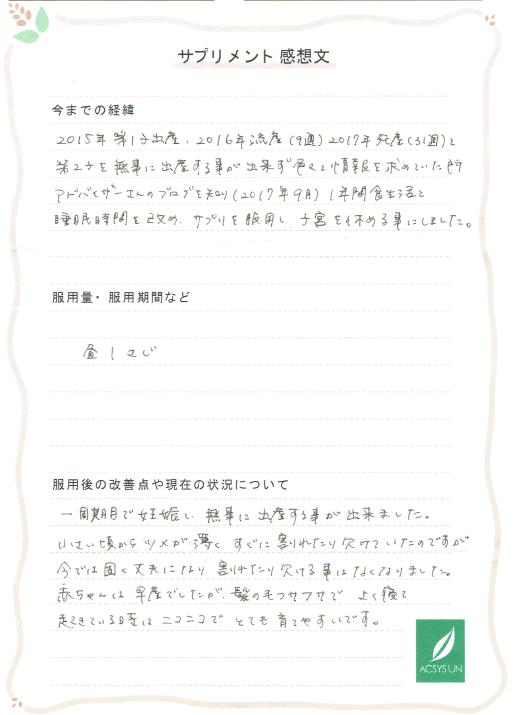 サプリメント 感想文
今までの経緯
2015年第1子出産、2016年流産(9週)2017年死産(31週)と
第2子を無事に出産する事が出来ず色々と情報を求めていた所
アドバイザーさんのブログを知り(2017年9月)1年間食生活と
睡眠時間を改め、サプリを服用し、子宮を休める事にしました。
服用量・服用期間など
昼1さじ
服用後の改善点や現在の状況について
一周期目で妊娠し、無事に出産する事が出来ました。
小さい頃からツメが薄く、すぐに割れたり欠けていたのですが
今では固く丈夫になり割れたり欠ける事はなくなりました。
赤ちゃんは早産でしたが、髪の毛フサフサで よく寝て
起きている時はニコニコで とても育てやすいです。
ACSYSUN